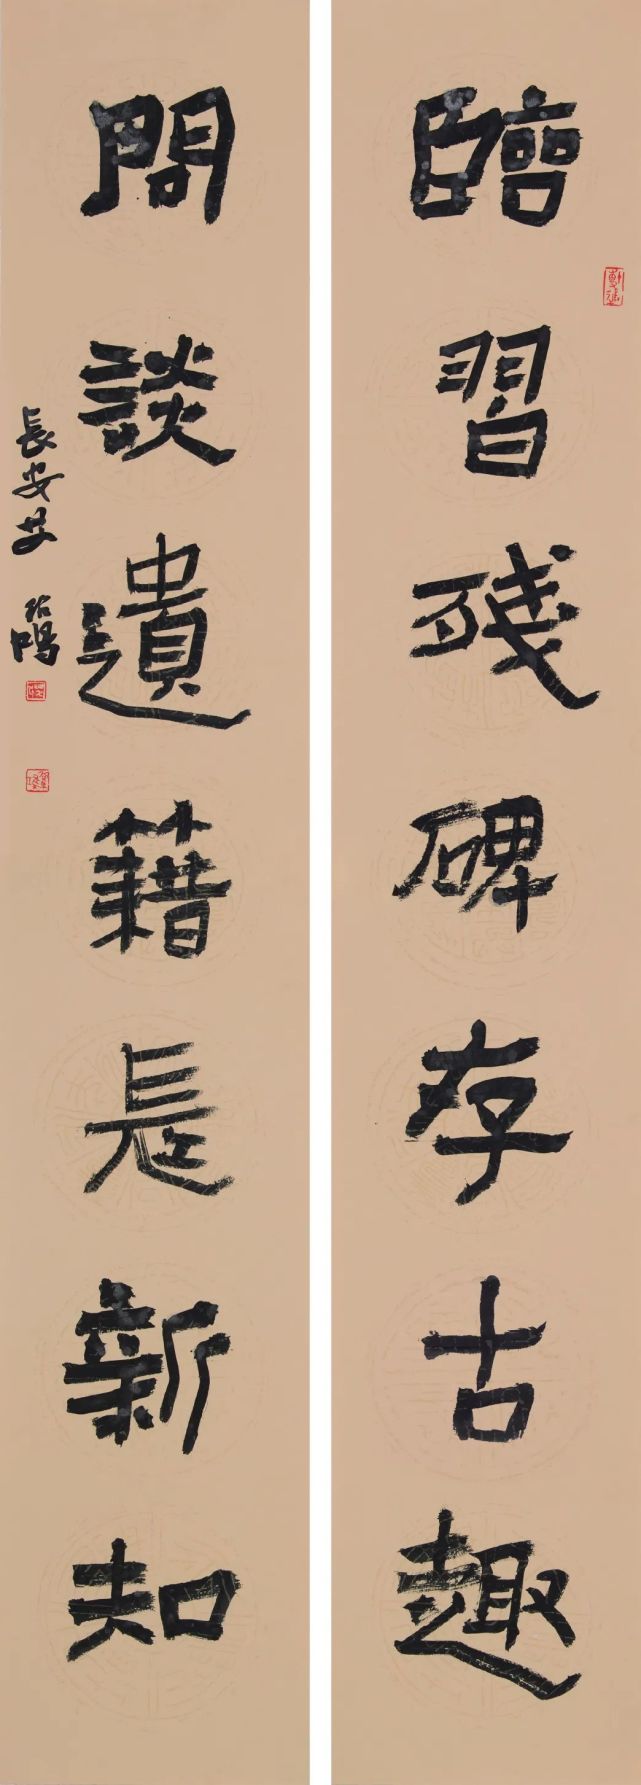 臨習殘碑存古趣
間談遺藉長新知
長安